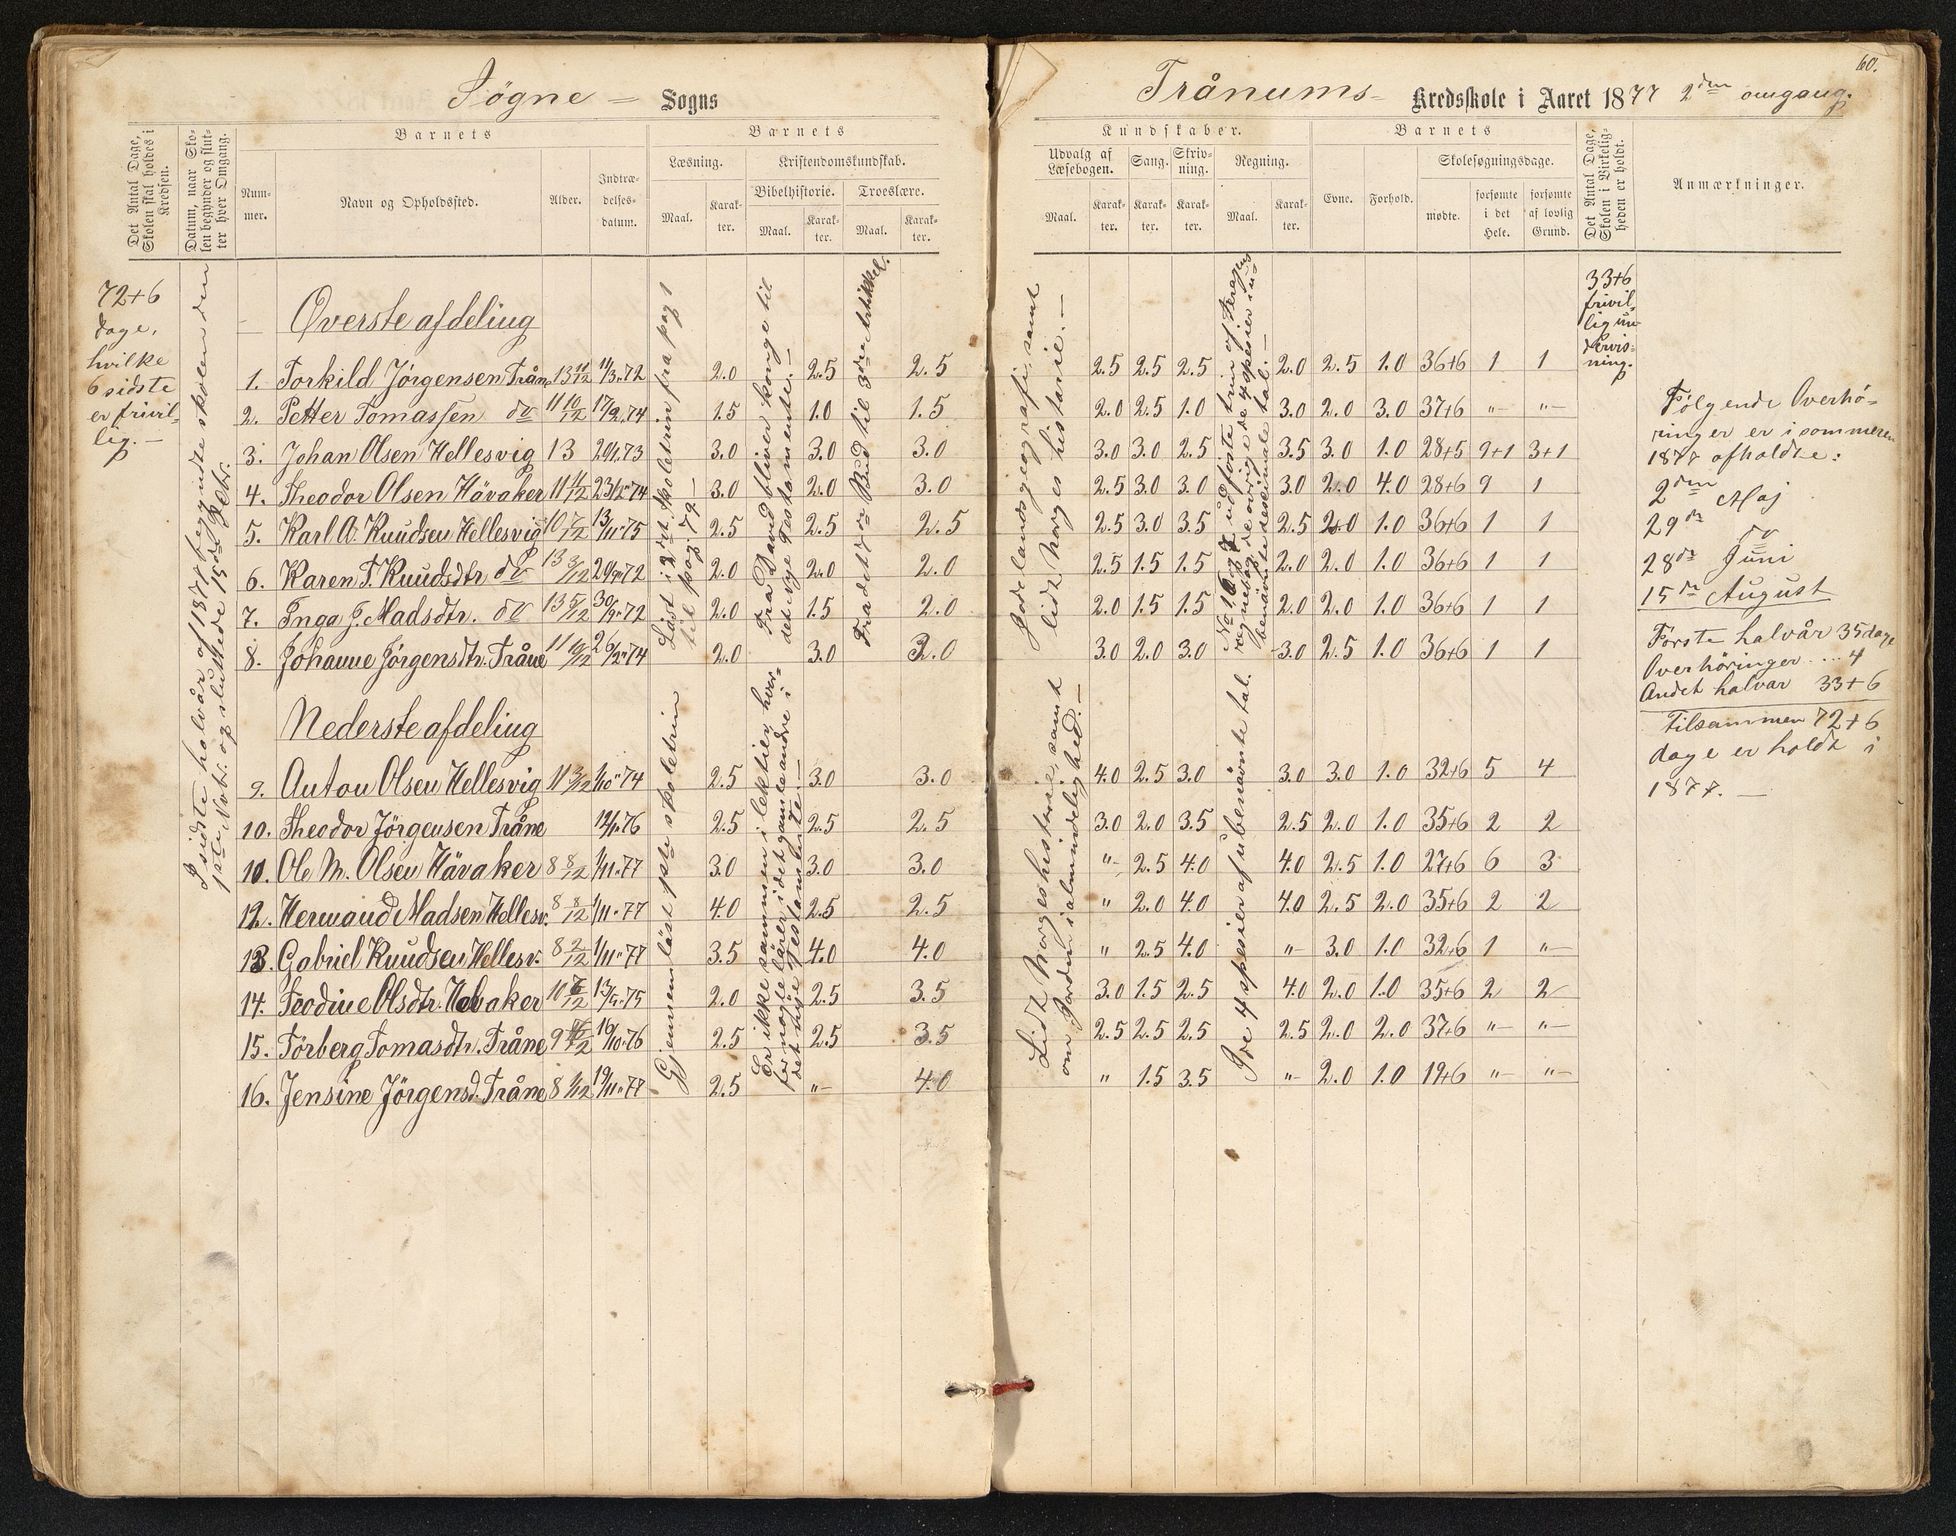 60.
Søgne – Sogns
Trånums- Kredsskole i Aaret 1877 2den omgang.
Det Antal Dage, Skolen skal holdes i Kredsen.
Datum, naar Skolen begynder og slutter hver Omgang.
Barnets
Nummer.
Navn og Opholdssted.
Alder.
Indtrædelsesdatum.
Barnets
Læsning.
Maal.
Karakter.
Kristendomskundskab.
Bibelhistorie.
Maal.
Karakter.
Troeslære.
Maal.
Karakter.
Kundskaber.
Udvalg af Læsebogen.
Maal.
Karakter.
Sang.
Karakter.
Skrivning.
Karakter.
Regning.
Maal.
Karakter.
Barnets
Evne.
Forhold.
Skolesøgningsdage.
mødte.
forsømte i det Hele.
forsømte af lovlig Grund.
Det Antal Dage, Skolen i Virkeligheden er holdt.
Anmærkninger.
72+6
dage,
hvilke
6 sidste
er frivil-
lig.–
I sidste halvår af 1877 begyndte skolen den
1ste Nvbr. og sluttede 15de Dcbr.
Øverste afdeling
1. Torkild Jörgensen Trån 13 11/12 11/3.72 2.0 2.5 2.5 2.5 2.5 2.5 2.0 2.5 1.0 36+6 1 1
2. Petter Tomassen do 11 10/12 17/2.74 1.5 1.0 1.5 2.0 2.5 1.0 3.0 2.0 3.0 37+6 "– "–
3. Johan Olsen Hellesvig 13 20/1.73 3.0 3.0 3.0 3.0 3.0 2.5 3.5 3.0 1.0 28+5 9+1 3+1
4. Theodor Olsen Hävaker 11 11/12 23/2"74 3.0 2.0 3.0 2.5 3.0 3.0 3.0 2.0 4.0 28+6 9 1
5. Karl A. Knudsen Hellesvig 10 7/12 13/11"75 2.5 2.5 2.5 2.5 3.0 3.5 2.5 2.0 1.0 36+6 1 1
6. Karen T. Knudsdtr do 13 3/12 20/9"72 2.0 2.0 2.0 2.5 1.5 1.5 2.0 2.0 1.0 36+6 1 1
7. Inga J. Madsdtr. do 13 5/12 30/9"72 2.0 1.5 2.0 2.0 1.5 1.5 2.0 2.0 1.0 36+6 1 1
8. Johanne Jörgensdtr. Tråne 11 10/12 26/2"74 2.0 3.0 3.0 3.0 2.0 3.0 3.0 2.5 1.0 36+6 1 1
Læst i 2det skoletrin fra pag 1
til pag. 79 –
Fra David bliver konge til
det nye Testamente.–
Fra det 7de Bud til 3dre artikkel.
Fædelandsgeografi, samt
lidt Norges historie.–
33+6
frivil-
lig un-
dervis-
ning.
Nederste afdeling
9. Anton Olsen Hellesvig 11 3/12 1/10"74 2.5 3.0 3.0 4.0 2.5 3.0 3.0 3.0 1.0 32+6 5 4
10. Theodor Jörgensen Tråne 12/1.76 2.5 2.5 2.5 3.0 2.0 3.5 2.5 2.0 1.0 35+6 2 2
11. Ole M. Olsen Hävaker 8 8/12 1/11.77 3.0 3.0 3.0 "– 2.5 4.0 4.0 2.5 1.0 27+6 6 3
12. Hermand Madsen Hellesv. 8 8/12 1/11"77 4.0 2.5 2.5 " 2.0 4.0 4.0 2.5 2.0 35+6 2 2
13. Gabriel Knudsen Hellesv. 8 2/12 1/11"77 3.5 4.0 4.0 " 2.5 4.0 "– 3.0 1.0 32+6 1 "–
14. Teodine Olsdtr. Håvaker 10 7/12 13/9.75 2.0 2.5 3.5 3.0 1.5 2.5 4.0 2.0 1.0 35+6 2 2
15. Törberg Tomasdtr. Tråne 9 16/10.76 2.5 2.5 3.5 2.5 2.5 2.5 2.5 2.0 2.0 37+6 "– "–
16. Jensine Jörgensd. Tråne 8 1/12 19/11"77 2.5 "– 4.0 " 1.5 3.5 "– 2.0 1.0 19+6 "– "–
Gjennemläst 1ste skoletrin
Er ikke sammen i lektier, hver-
for nogle lærer i det gamle andre i
det nye Testamente.–
Lidt Norges historie, samt
om Jorden i almindelighed.–
De 4 spesier af ubenävnte tal.
Fölgende Overhö-
ringer er i sommeren
1877 afholdte:
2den Maj
29de do
28de Juni
15de August
Förste halvår 35 dage
Overhöringer .... 4
Andet halvår 33+6
Tilsammen 72+6
dage er holdt i
1877.–